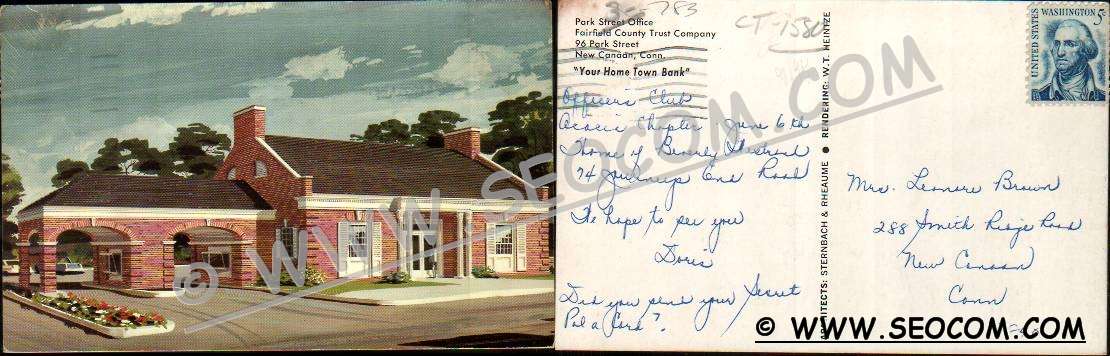 © WWW.SEOCOM.COM
Park Street Office
Fairfield County Trust Company
96 Park Street
New Canaan, Conn.
"Your Home Town Bank"
CT-1586
UNITED STATES
WASHINGTON 5c
Officer's Club
Acacia Chapter, June 6th
Home of Beverly
74 Journeys End Road
We hope to see you
Doris
Did you send your Secret
Pal a Card?
ARCHITECTS: STERNBACH & RHEAUME ● RENDERING: W.T. HEINTZE
Mrs. Leonore Brown
288 Smith Ridge Road
New Canaan
Conn
© WWW.SEOCOM.COM